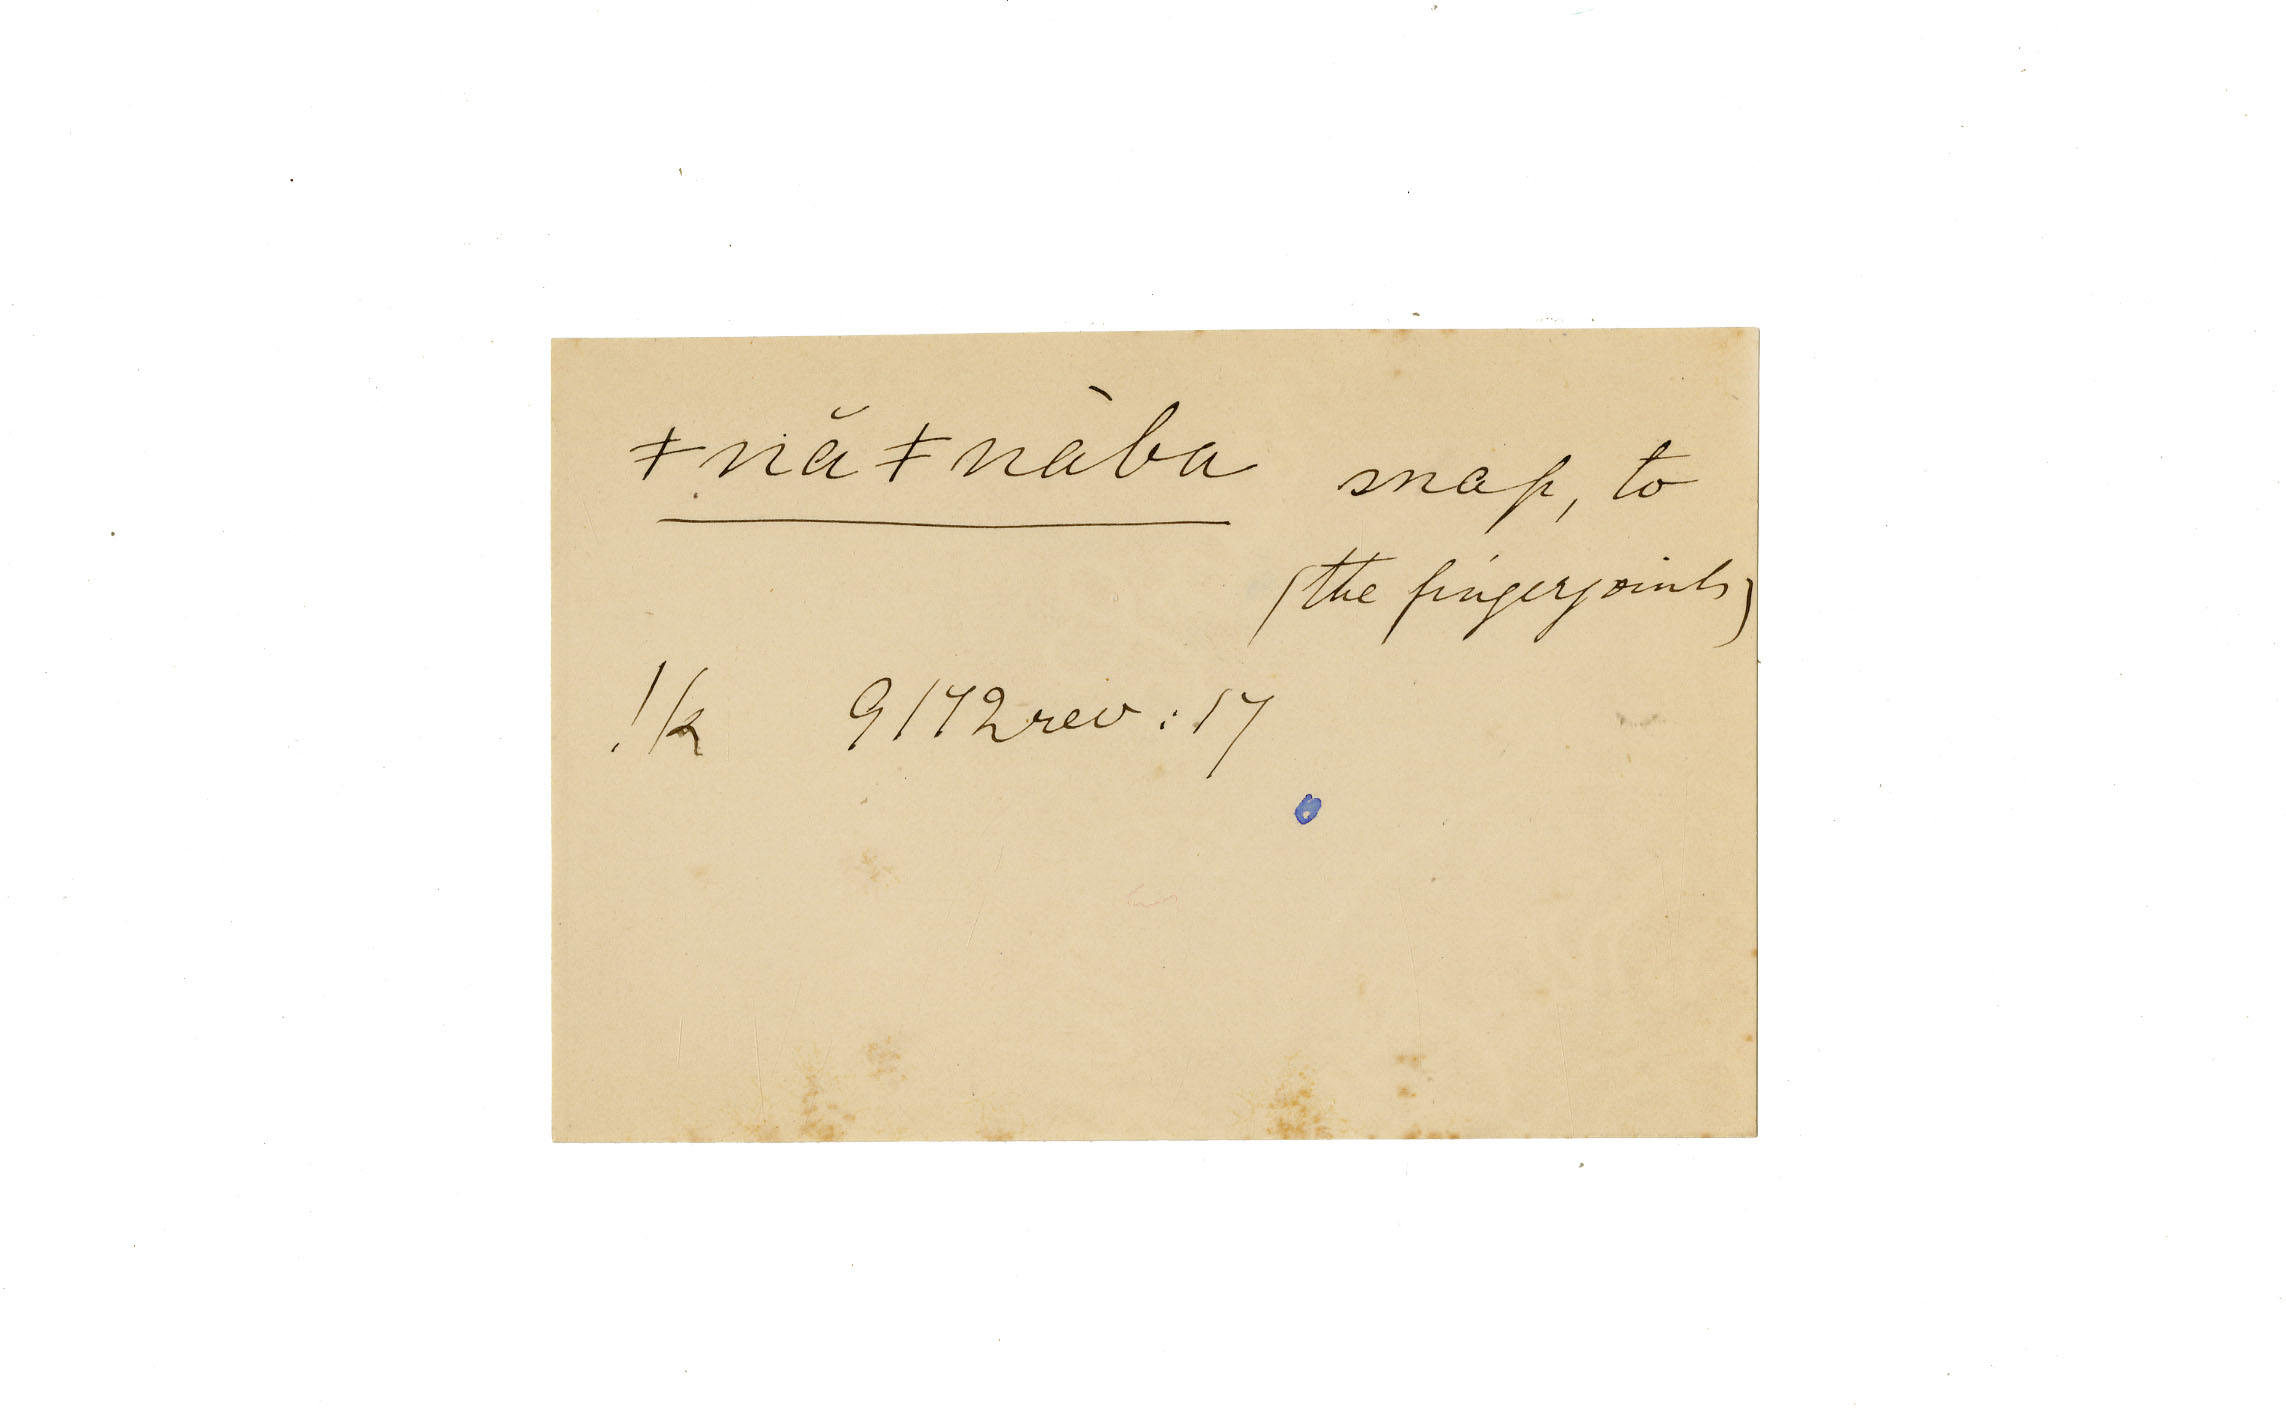 ǂnă ǂnàba snap, to
(the fingerjoints)
!k 9172rev : 17